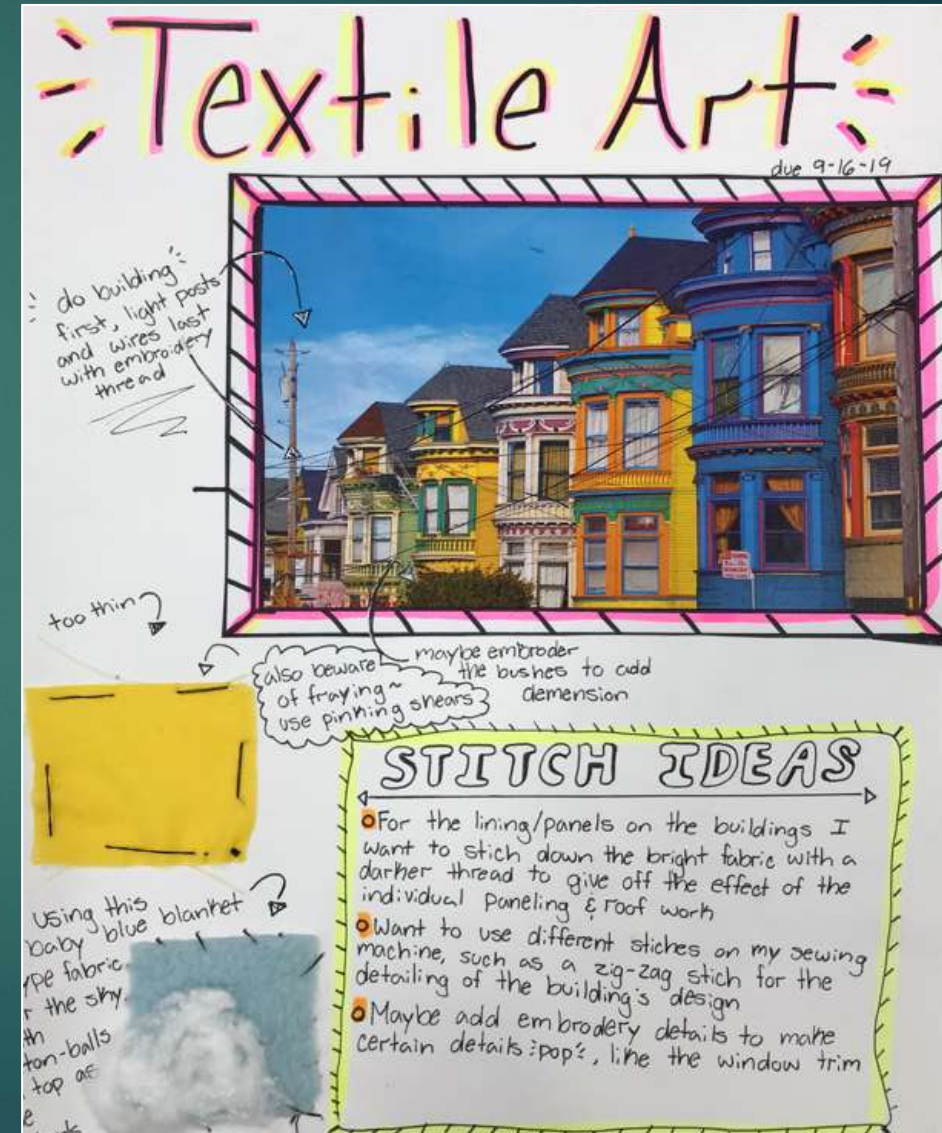 Textile Art
due 9-16-19
do building
first, light posts
and wires last
with embroidery
thread
too thin
also beware
of fraying~
use pinking shears
maybe embroder
the bushes to add
demension
STITCH IDEAS
For the lining/panels on the buildings I
want to stich down the bright fabric with a
darker thread to give off the effect of the
individual paneling & roof work
Want to use different stiches on my sewing
machine, such as a zig-zag stich for the
detailing of the building's design
Maybe add embrodery details to make
certain details pop, like the window trim
using this
baby blue blanket
ype fabric
the sky
ton-balls
top as